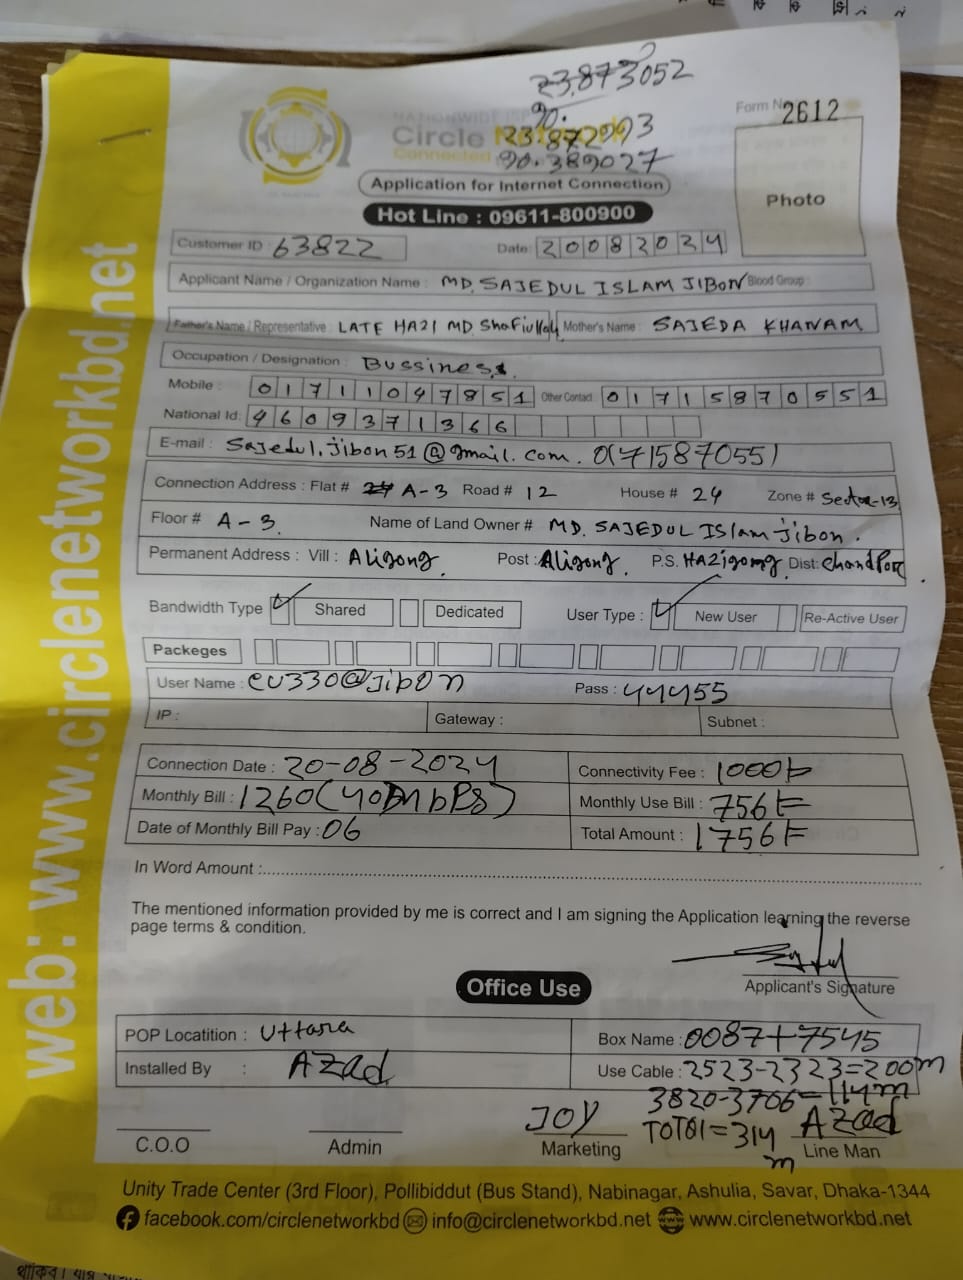 23.873052
90.
23.872993
90.389027
Form No 2612
NATIONWIDE ISP
Circle Network
Connected
Application for Internet Connection
Photo
Hot Line : 09611-800900
Customer ID : 63822
Date: 20082024
Applicant Name / Organization Name : MD. SAJEDUL ISLAM JIBON Blood Group :
Father's Name / Representative : LATE HAZI MD Shafiullah Mother's Name : SAJEDA KHANAM
Occupation / Designation : Bussiness.
Mobile : 01711047851 Other Contact 01715870551
National Id: 4609371366
E-mail : Sajedul.jibon51@gmail.com. 01715870551
Connection Address : Flat # A-3 Road # 12 House # 24 Zone # Sector-13
Floor # A-3 Name of Land Owner # MD. SAJEDUL ISlam jibon.
Permanent Address : Vill : Aligong. Post : Aligong. P.S. HAZigong Dist: Chandpor.
Bandwidth Type Shared Dedicated User Type : New User Re-Active User
Packeges
User Name : cu330@Jibon Pass : 44455
IP : Gateway : Subnet :
Connection Date : 20-08-2024 Connectivity Fee : 1000৳
Monthly Bill : 1260(40Mbps) Monthly Use Bill : 756৳
Date of Monthly Bill Pay : 06 Total Amount : 1756৳
In Word Amount :
The mentioned information provided by me is correct and I am signing the Application learning the reverse
page terms & condition.
Applicant's Signature
Office Use
POP Locatition : Uttara Box Name : 0087+7545
Installed By : AZad Use Cable : 2523-2323=200m
3820-3706=114m
TOTAl=314m
JOY AZad
C.O.O Admin Marketing Line Man
Unity Trade Center (3rd Floor), Pollibiddut (Bus Stand), Nabinagar, Ashulia, Savar, Dhaka-1344
facebook.com/circlenetworkbd info@circlenetworkbd.net www.circlenetworkbd.net
web: www.circlenetworkbd.net